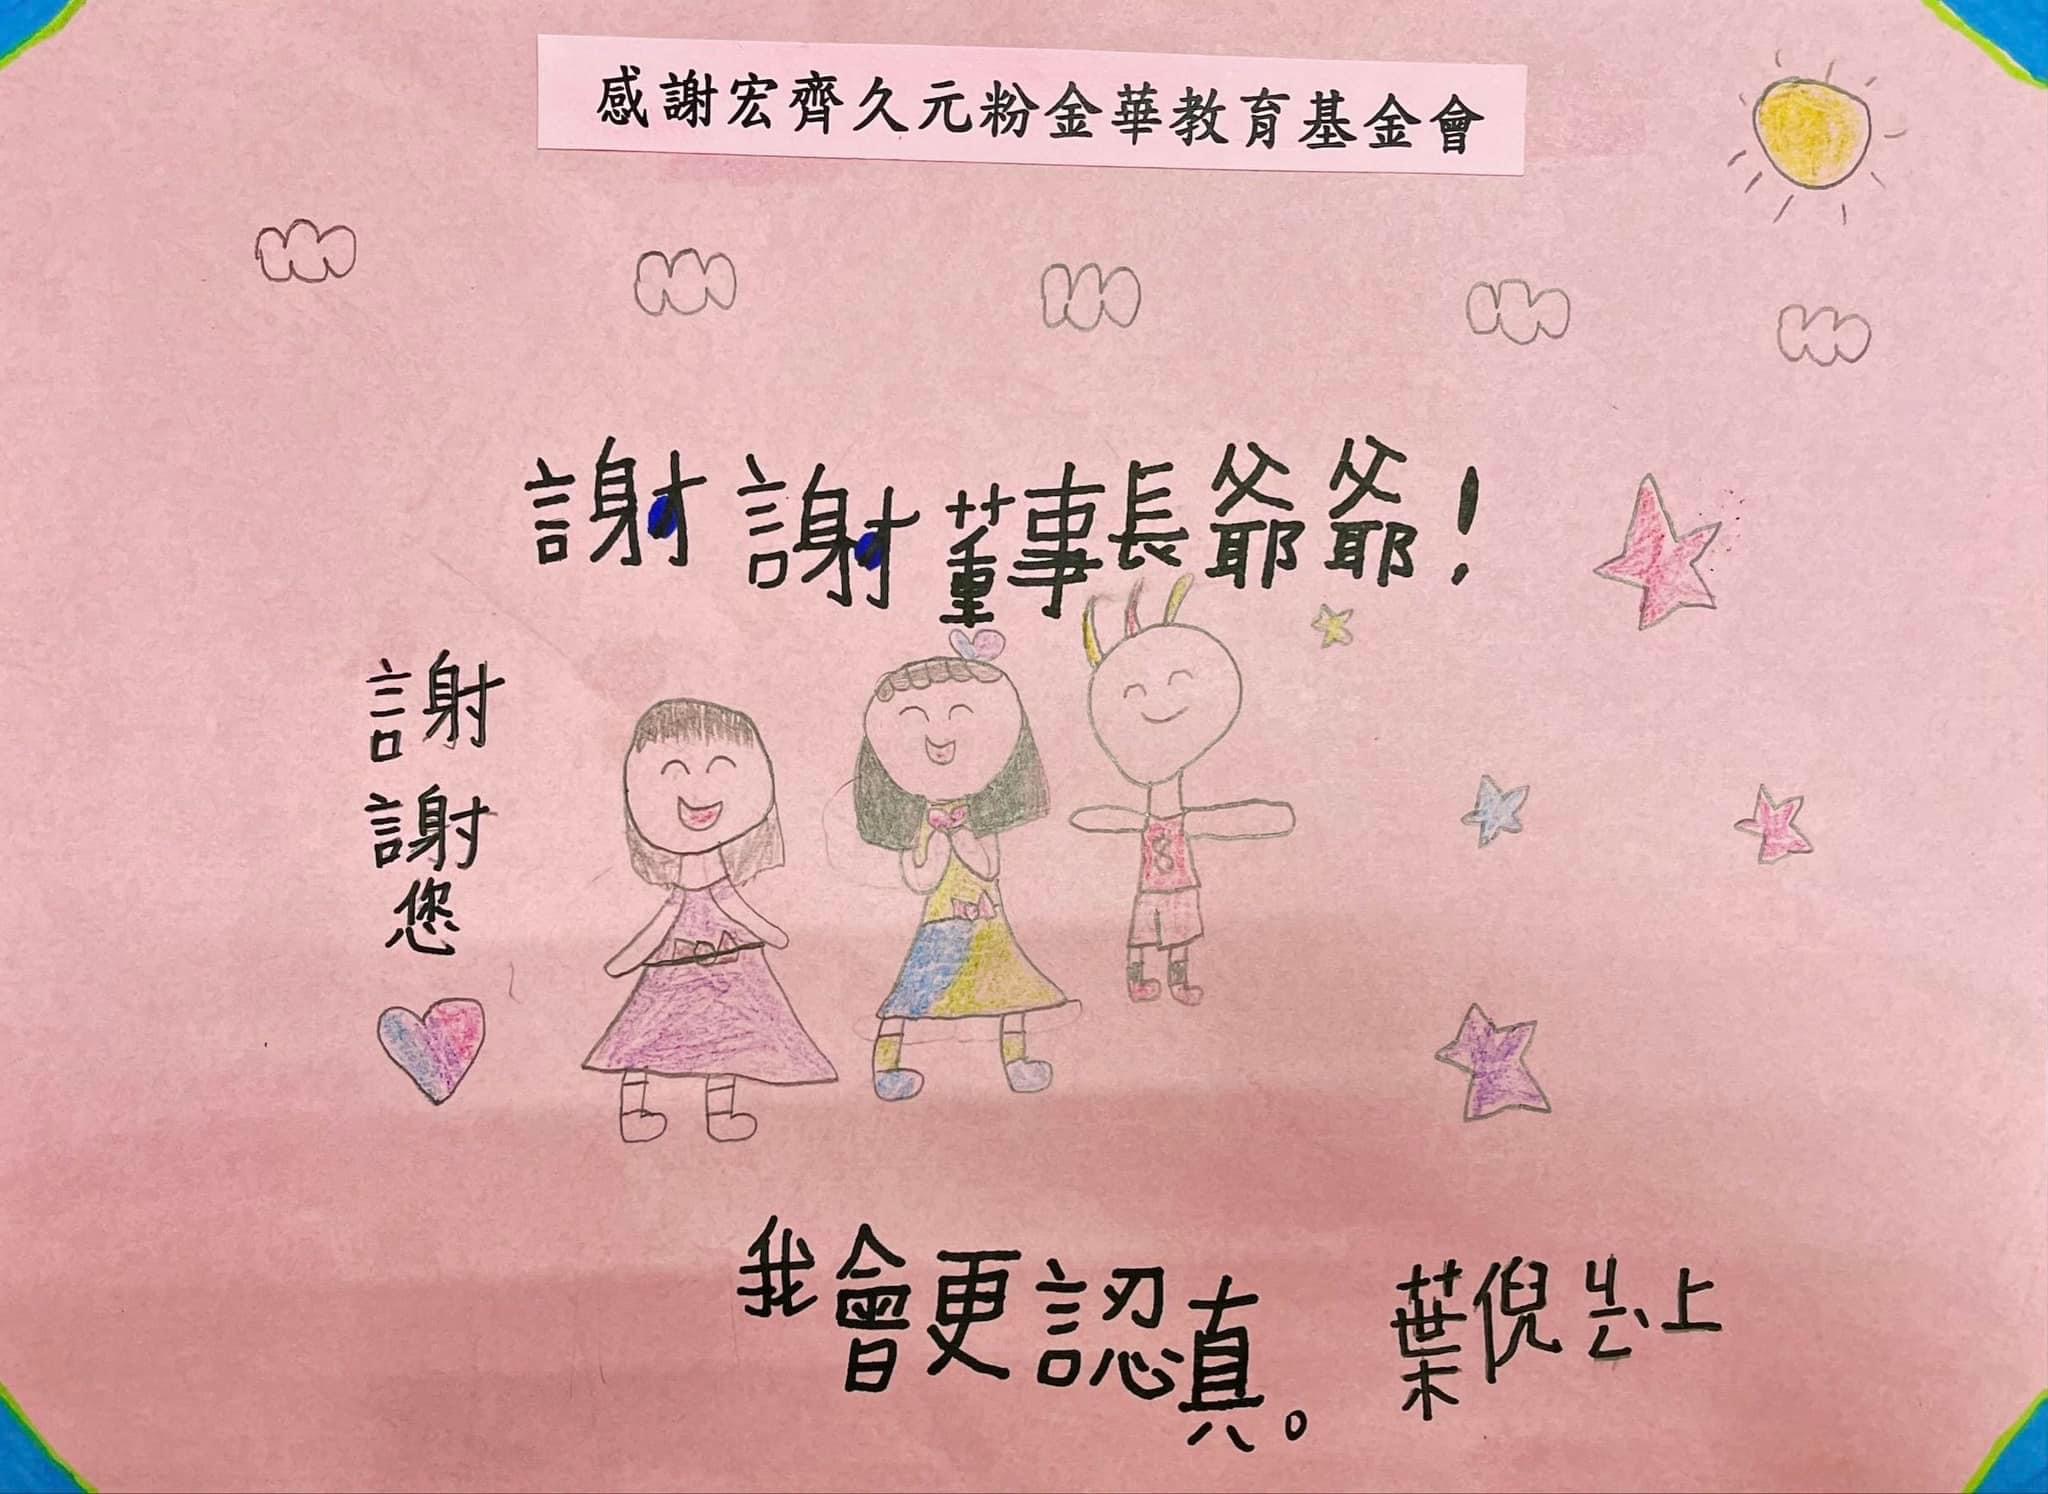 感謝宏齊久元粉金華教育基金會
謝謝董事長爺爺!
謝謝您
8
我會更認真。
葉倪 上